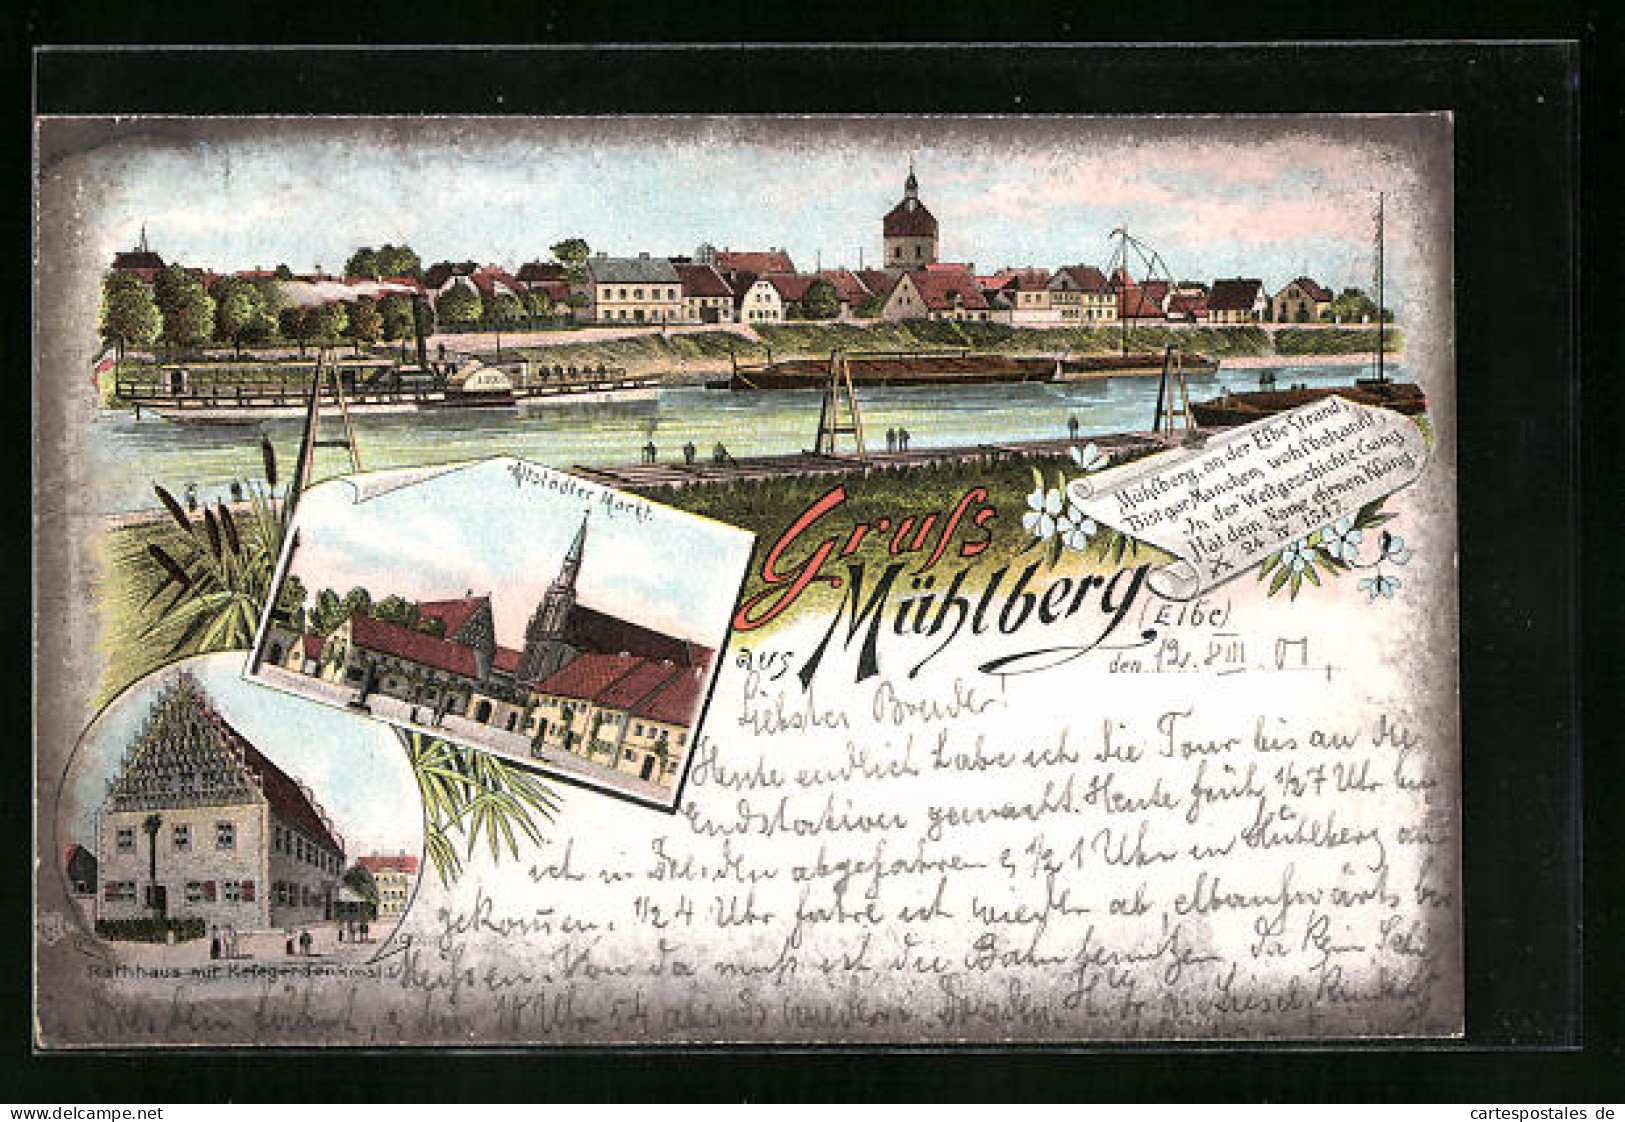 Mühlberg, an der Elbe Strand,
Bist gar Manchem wohl bekannt,
In der Weltgeschichte Gang
Hat dein Name ehrnen Klang.
24. 1547.
Altstädter Markt.
Gruss
aus Mühlberg,
(Elbe)
den 12. VIII. 01,
Liebster Bruder!
Heute endlich habe ich die Tour bis an die
Endstation gemacht. Heute früh 1/2 7 Uhr bin
ich in Dresden abgefahren & 1/2 1 Uhr in Mühlberg an
gekommen. 1/2 4 Uhr fahre ich wieder ab, elbaufwärts bis
Meissen. Von da muß ich die Bahn benutzen, da kein Schiff
Dresden fährt, & bin 10 Uhr 54 abends wieder in Dresden.
Rathhaus mit Kriegerdenkmal
cartespostales.de
cartespostales de